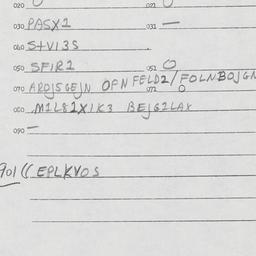 020 O 021 O
030 PASX2 031 —
060 S+VI3S
050 SFIR2 051 O
070 ARDJSGEJN OFNFELD2/FOLNBOJGN
072 O
080 M2L82XIK3 BEJGILAY
090 —
901 (( EPLKVOS